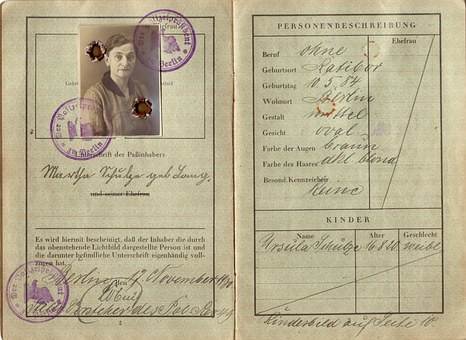 Der Polizeipräsident
in Berlin
Der Polizeipräsident
in Berlin
Unterschrift des Paßinhabers
Martha Schulze geb
und seiner Ehefrau
Es wird hiermit bescheinigt, daß der Inhaber die durch
das obenstehende Lichtbild dargestellte Person ist und
die darunter befindliche Unterschrift eigenhändig voll-
zogen hat.
Berlin, den 17. November
2
PERSONENBESCHREIBUNG
Ehefrau
Beruf ohne
Geburtsort Ratibor
Geburtstag 10.5.84
Wohnort Berlin
Gestalt mittel
Gesicht oval
Farbe der Augen braun
Farbe des Haares blond
Besond. Kennzeichen
Keine
KINDER
Name Alter Geschlecht
Ursula Schulze
Kinderbild auf Seite 10.